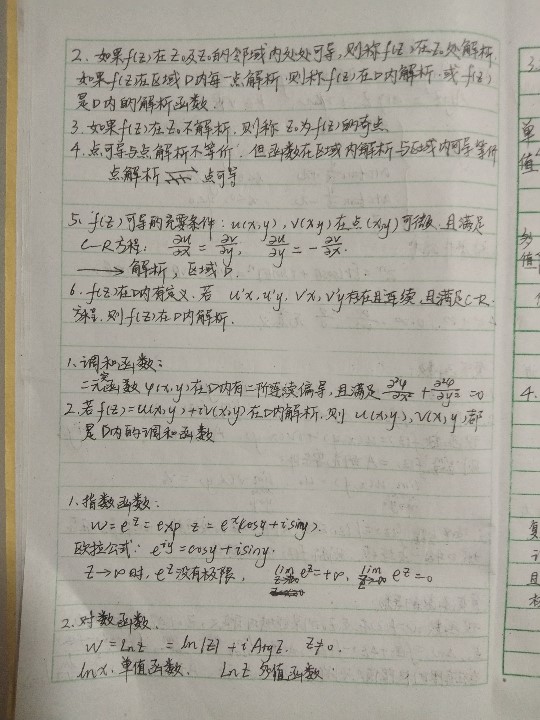 2. 如果f(z)在z₀及z₀的邻域内处处可导,则称f(z)在z₀处解析.
如果f(z)在区域D内每一点解析.则称f(z)在D内解析.或f(z)
是D内的解析函数.
3. 如果f(z)在z₀不解析.则称z₀为f(z)的奇点
4. 点可导与点解析不等价.但函数在区域内解析与区域内可导等价
点解析 ⇌ 点可导
5. f(z)可导的充要条件: u(x,y), v(x,y)在点(x,y)可微.且满足
C-R方程: ∂u/∂x = ∂v/∂y, ∂u/∂y = -∂v/∂x.
→ 解析: 区域D.
6. f(z)在D内有定义.若 u'x, u'y, v'x, v'y存在且连续.且满足C-R
方程.则f(z)在D内解析.
1. 调和函数:
二元实函数φ(x,y)在D内有二阶连续偏导,且满足 ∂²φ/∂x² + ∂²φ/∂y² = 0
2. 若f(z)=u(x,y)+iv(x,y)在D内解析.则 u(x,y), v(x,y)都
是D内的调和函数
1. 指数函数:
w=e^z=exp z=e^x(cosy+isiny).
欧拉公式: e^iy=cosy+isiny.
z→∞时, e^z没有极限, lim e^z=+∞, lim e^z=0
2. 对数函数
w=Lnz =ln|z|+iArgz. z≠0.
lnx.单值函数. Lnz 多值函数.
3.
单
值
多
值
4.
复
且